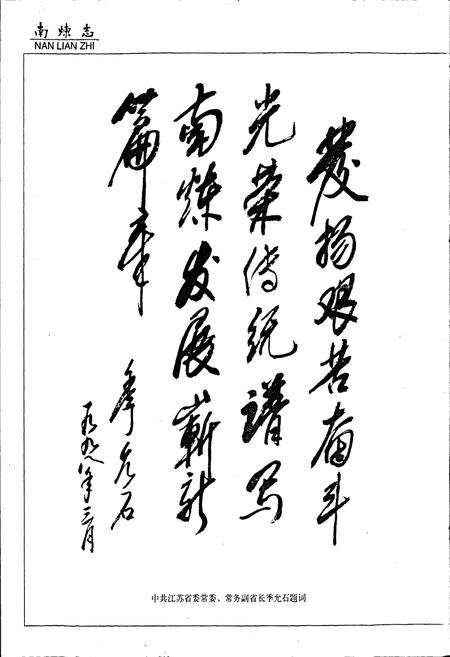 南炼志
NAN LIAN ZHI
发扬艰苦奋斗
光荣传统谱写
南炼发展崭新
篇章
季允石
一九九八年三月
中共江苏省委常委、常务副省长季允石题词